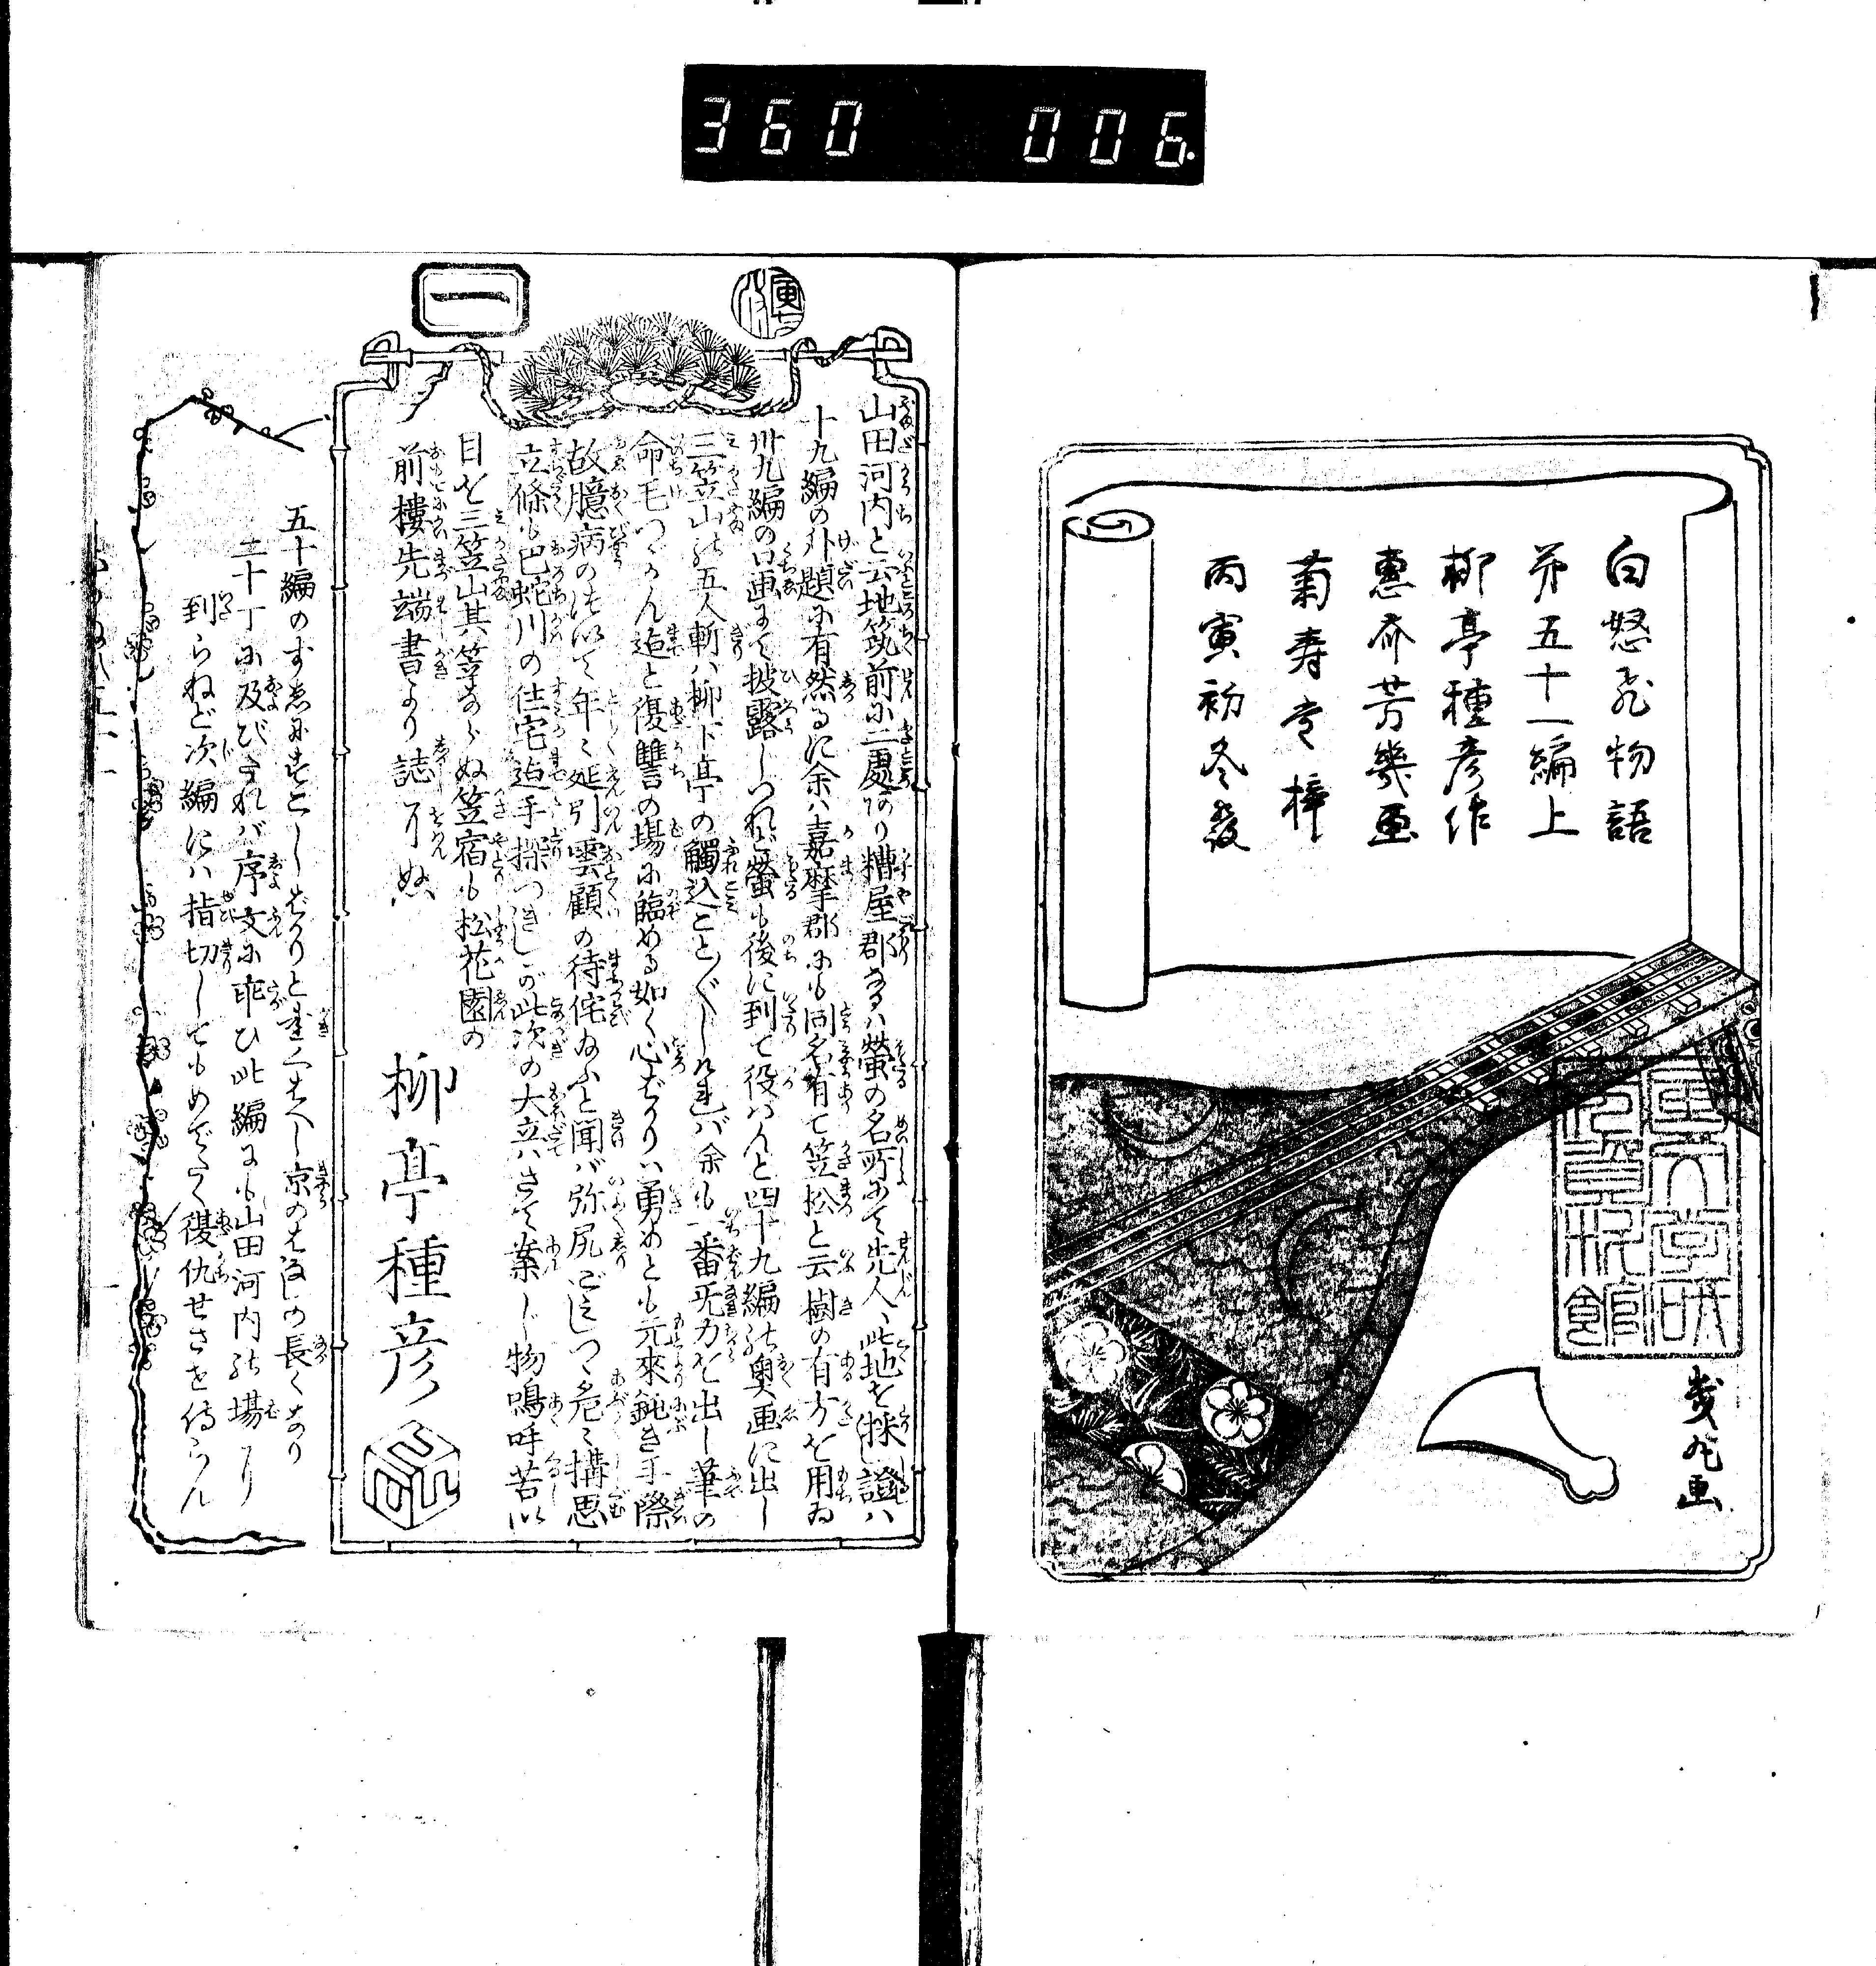 360 006.
白怒火物語
第五十一編上
柳亭種彦作
蕙斎芳幾画
菊寿堂梓
丙寅初冬発
幾丸画
一
山田河内と云地筑前に二處あり糟屋郡なるハ螢の名所にて先人ハ此地を採し證ハ
十九編の外題に有然るに余ハ嘉摩郡にも同名有て笠松と云樹の有方を用ゐ
卅九編の口画にて披露しつれど螢も後に到て役はんと四十九編の奥画に出し
三笠山の五人斬ハ柳下亭の觸込こと〲しければ余も一番死力を出し筆の
命毛つゞかん迨と復讐の場に臨める如く心ばかりハ勇めとも元來鈍き手際
故臆病の
年〻延引雲顧の待侘給ふと聞バ弥尻ごみしつゝ危〻構思
立條も巴蛇川の住宅迨手探つきしが此次の大立ハさて案じ物嗚呼苦い
目を三笠山其笠ならぬ笠宿も松花園の
前樓先端書より誌りぬ
柳亭種彦
五十編のすゑにをとしばかりと
京の
長くなり
二十丁に及びたれバ序文に乖ひ此編にも山田河内の場に
到らねど次編にハ指切してもめでたく復仇せさを侍らん